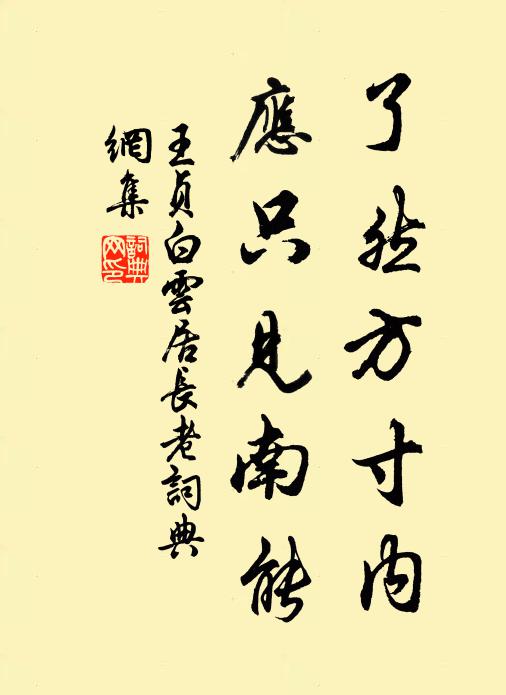 了然方寸內
應只見南能
王貞白雲居長老詞典
網集
詞典
网印